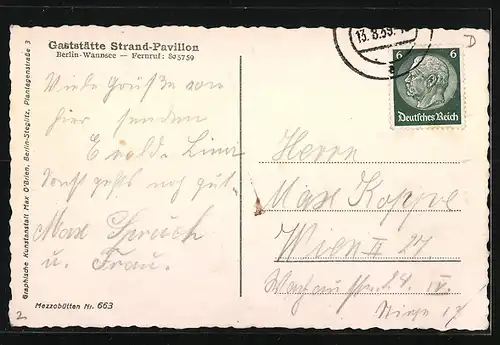 Gaststätte Strand-Pavillon
Berlin-Wannsee — Fernruf: 80 57 59
Graphische Kunstanstalt Max O'Brien, Berlin-Steglitz, Plantagenstraße 3
Viele Grüße von
hier senden
Ewald. Lina
Sonst gehts noch gut.
Max
u. Frau.
Mezzobütten Nr. 663
2.
13. 8. 39.
a
D
6 6
Deutsches Reich
Herrn
Max Koppe
Wien II 27
IV.